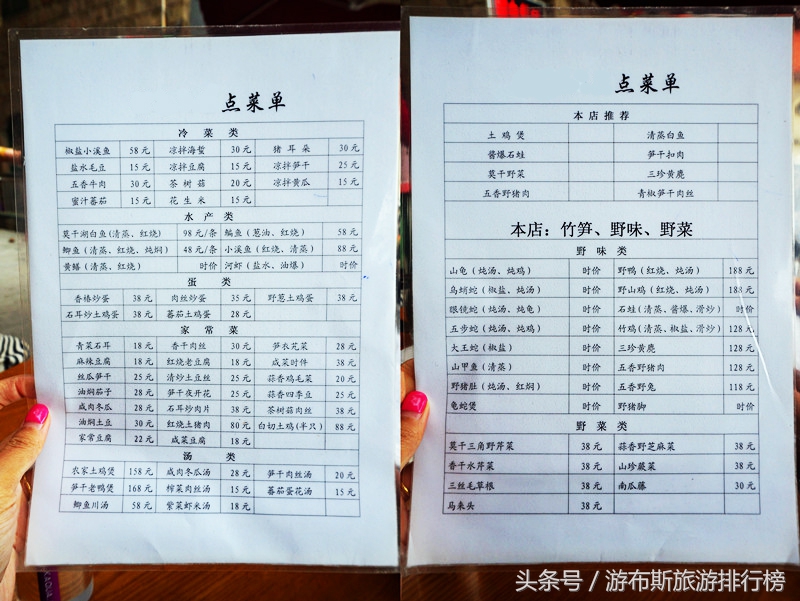 点菜单
冷 菜 类
椒盐小溪鱼 58 元 凉拌海蜇 30 元 猪 耳 朵 30 元
盐水毛豆 15 元 凉拌豆腐 15 元 凉拌笋干 25 元
五香牛肉 30 元 茶 树 菇 20 元 凉拌黄瓜 15 元
蜜汁蕃茄 15 元 花 生 米 15 元
水 产 类
莫干湖白鱼(清蒸、红烧) 98 元/条 鳊鱼（葱油、红烧） 58 元
鲫鱼（清蒸、红烧、炖焖） 48 元/条 小溪鱼（红烧、清蒸） 88 元
黄鳝（清蒸、红烧） 时价 河虾（盐水、油爆） 时价
蛋 类
香椿炒蛋 38 元 肉丝炒蛋 35 元 野葱土鸡蛋 38 元
石耳炒土鸡蛋 38 元 蕃茄土鸡蛋 28 元
家 常 菜
青菜石耳 18 元 香干肉丝 30 元 笋衣芃菜 28 元
麻辣豆腐 18 元 红烧老豆腐 18 元 咸菜时件 38 元
丝瓜笋干 25 元 清炒土豆丝 25 元 蒜香鸡毛菜 20 元
油焖茄子 28 元 笋干夜开花 25 元 蒜香四季豆 25 元
咸肉冬瓜 28 元 石耳炒肉片 38 元 茶树菇肉丝 38 元
油焖土豆 30 元 红烧土猪肉 80 元 白切土鸡(半只) 88 元
家常豆腐 22 元 咸菜豆腐 18 元
汤 类
农家土鸡煲 158 元 咸肉冬瓜汤 28 元 笋干肉丝汤 20 元
笋干老鸭煲 168 元 榨菜肉丝汤 15 元 蕃茄蛋花汤 15 元
鲫鱼川汤 58 元 紫菜虾米汤 18 元
点菜单
本 店 推 荐
土 鸡 煲 清蒸白鱼
酱爆石蛙 笋干扣肉
莫干野菜 三珍黄鹿
五香野猪肉 青椒笋干肉丝
本店：竹笋、野味、野菜
野 味 类
山龟（炖汤、炖鸡） 时价 野鸭（红烧、炖汤） 188 元
乌蛸蛇（椒盐、炖汤） 时价 野山鸡（红烧、炖汤） 188 元
眼镜蛇（炖汤、炖龟） 时价 石蛙（清蒸、酱爆、滑炒） 时价
五步蛇（炖汤、炖鸡） 时价 竹鸡（清蒸、椒盐、滑炒） 128 元
大王蛇（椒盐） 时价 三珍黄鹿 128 元
山甲鱼（清蒸） 时价 五香野猪肉 128 元
野猪肚（炖汤、红焖） 时价 五香野兔 118 元
龟蛇煲 时价 野猪脚 时价
野 菜 类
莫干三角野芹菜 38 元 蒜香野芝麻菜 38 元
香干水芹菜 38 元 山珍蕨菜 38 元
三丝毛草根 38 元 南瓜藤 30 元
马来头 38 元
头条号 / 游布斯旅游排行榜